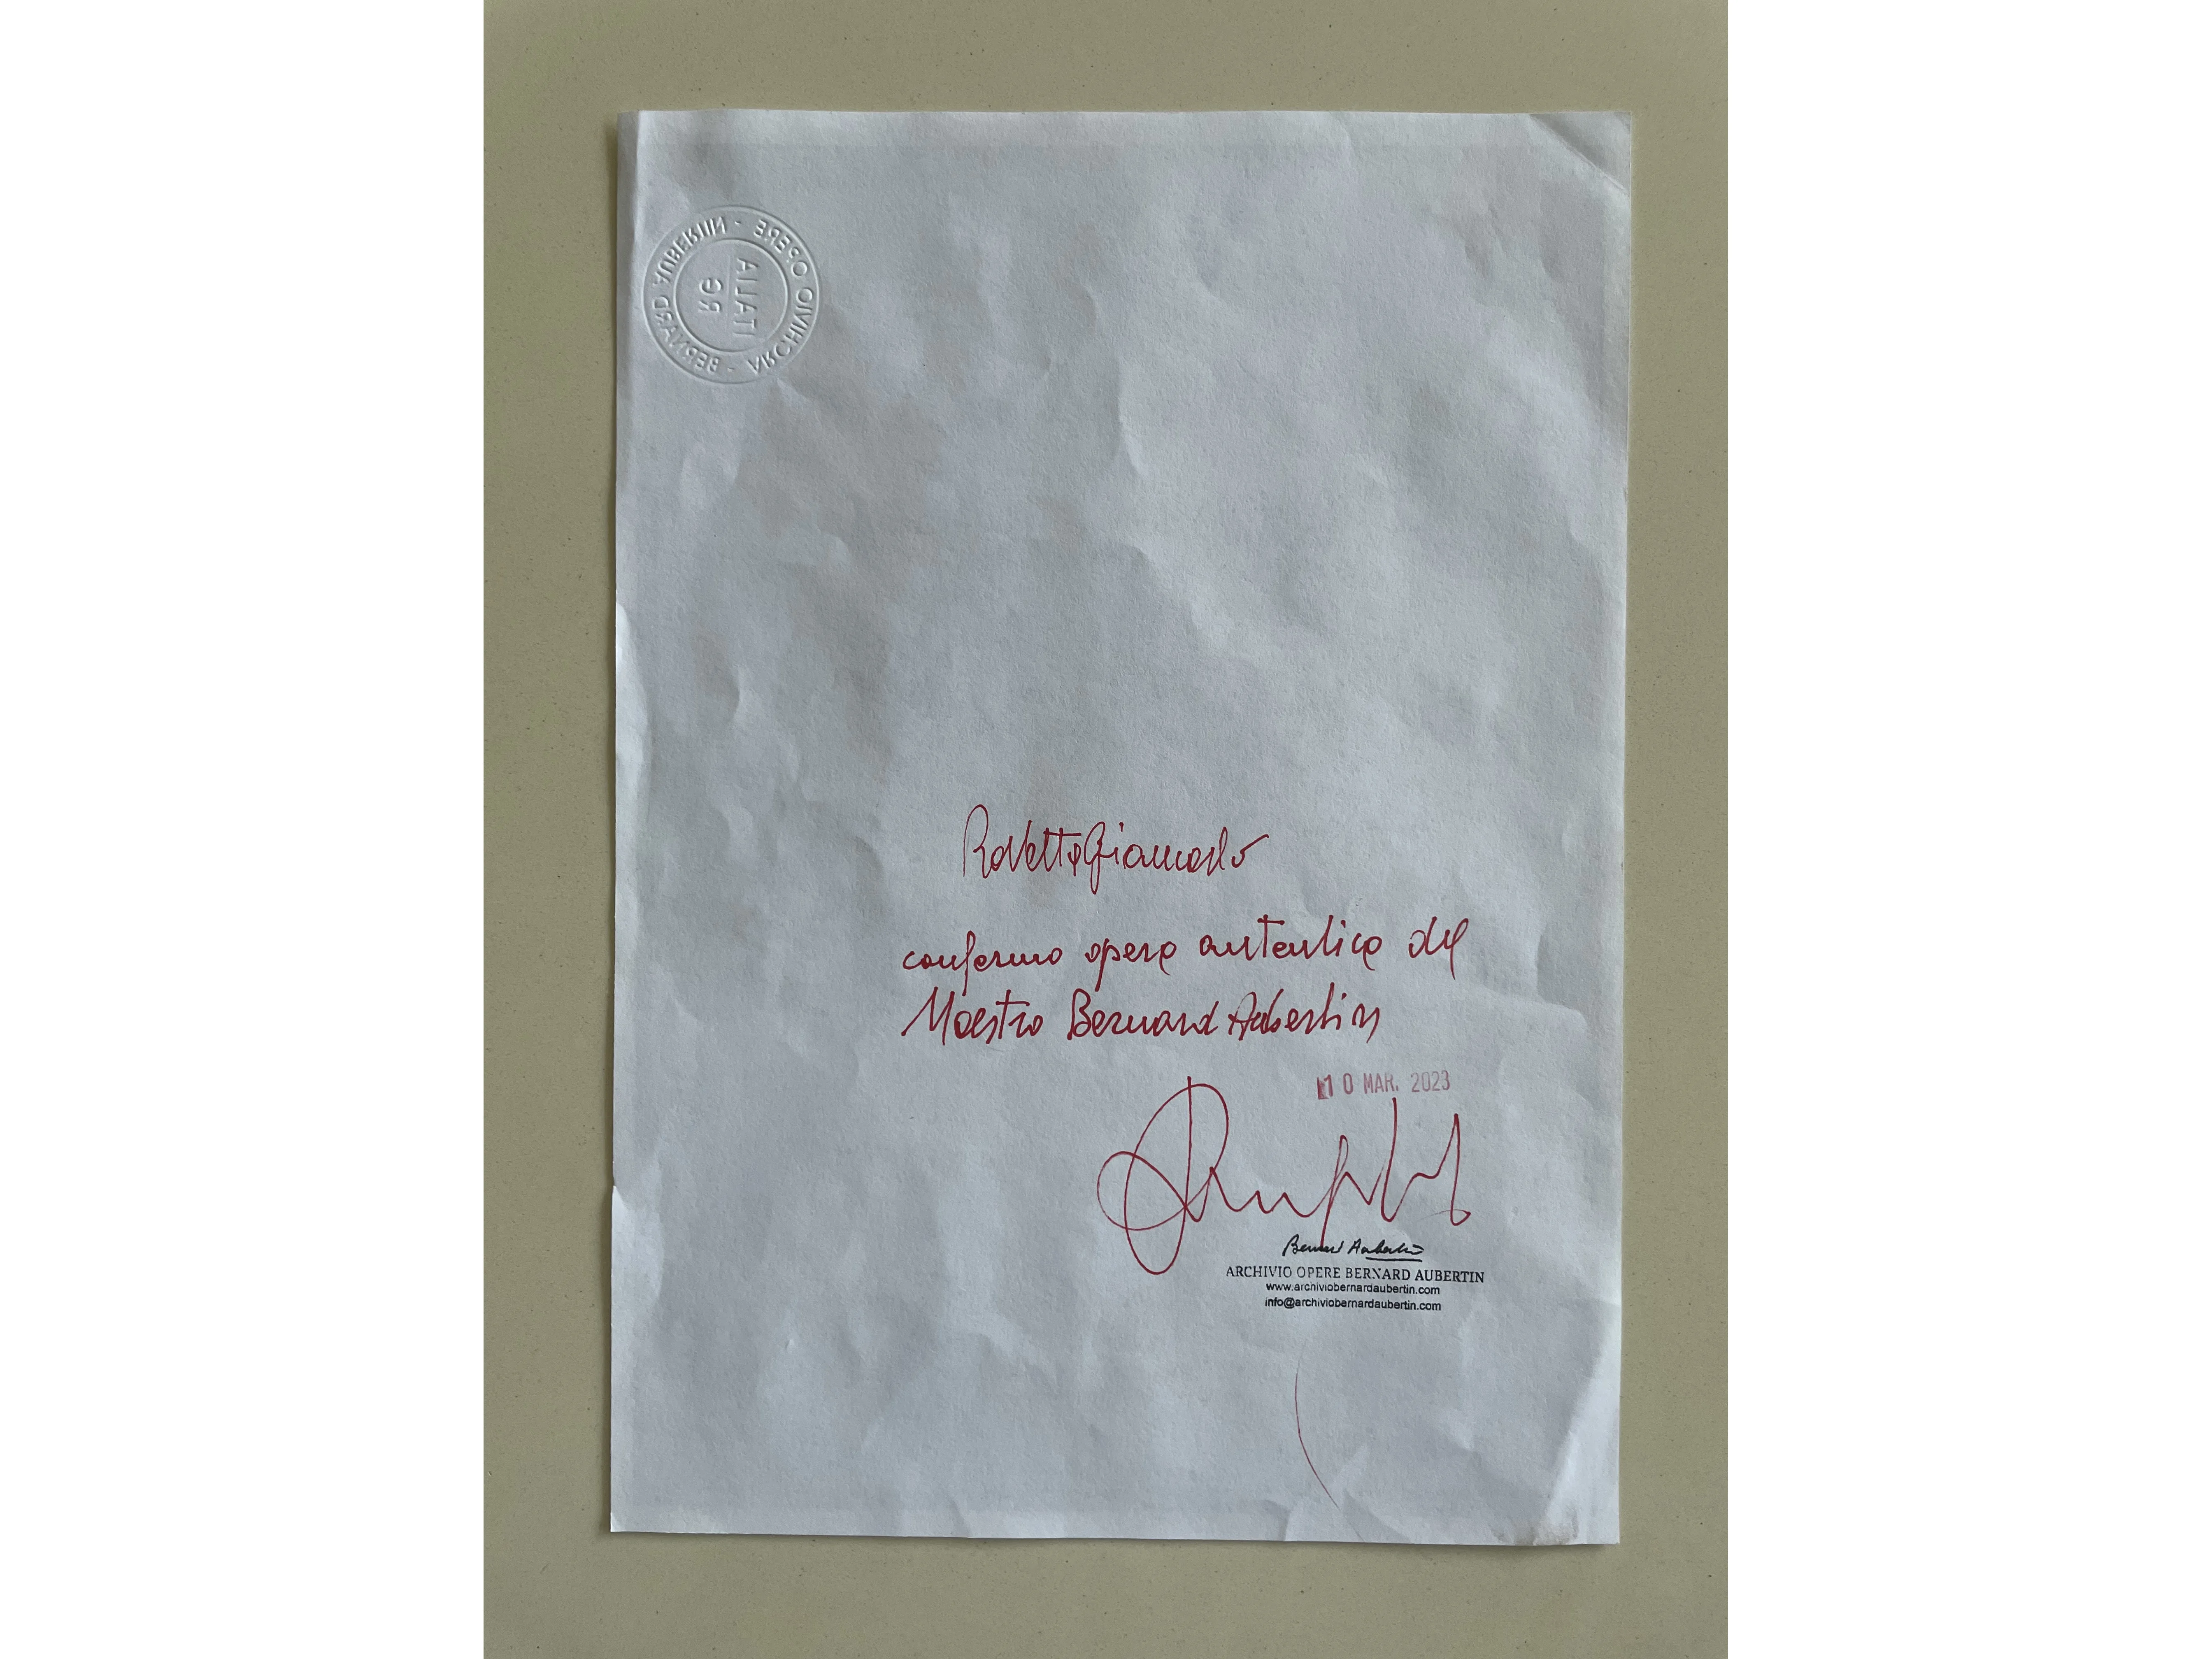 ARCHIVIO OPERE - BERNARD AUBERTIN -
ITALIA
RG
Rovetta Giancarlo
confermo opera autentica del
Maestro Bernard Aubertin
10 MAR. 2023
Bernard Aubertin
ARCHIVIO OPERE BERNARD AUBERTIN
www.archiviobernardaubertin.com
info@archiviobernardaubertin.com